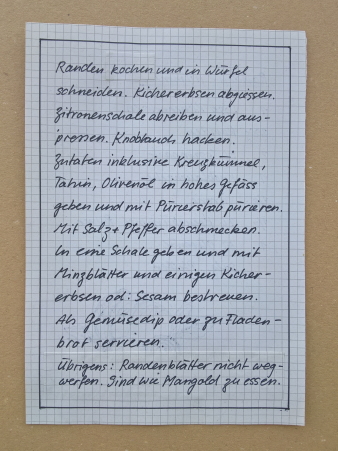 Randen kochen und in Würfel
schneiden. Kichererbsen abgiessen.
Zitronenschale abreiben und aus-
pressen. Knoblauch hacken.
Zutaten inklusive Kreuzkümmel,
Tahin, Olivenöl in hohes Gefäss
geben und mit Pürierstab pürieren.
Mit Salz + Pfeffer abschmecken.
In eine Schale geben und mit
Minzblätter und einigen Kicher-
erbsen od. Sesam bestreuen.
Als Gemüsedip oder zu Fladen-
brot servieren.
Übrigens: Randenblätter nicht weg-
werfen. Sind wie Mangold zu essen.